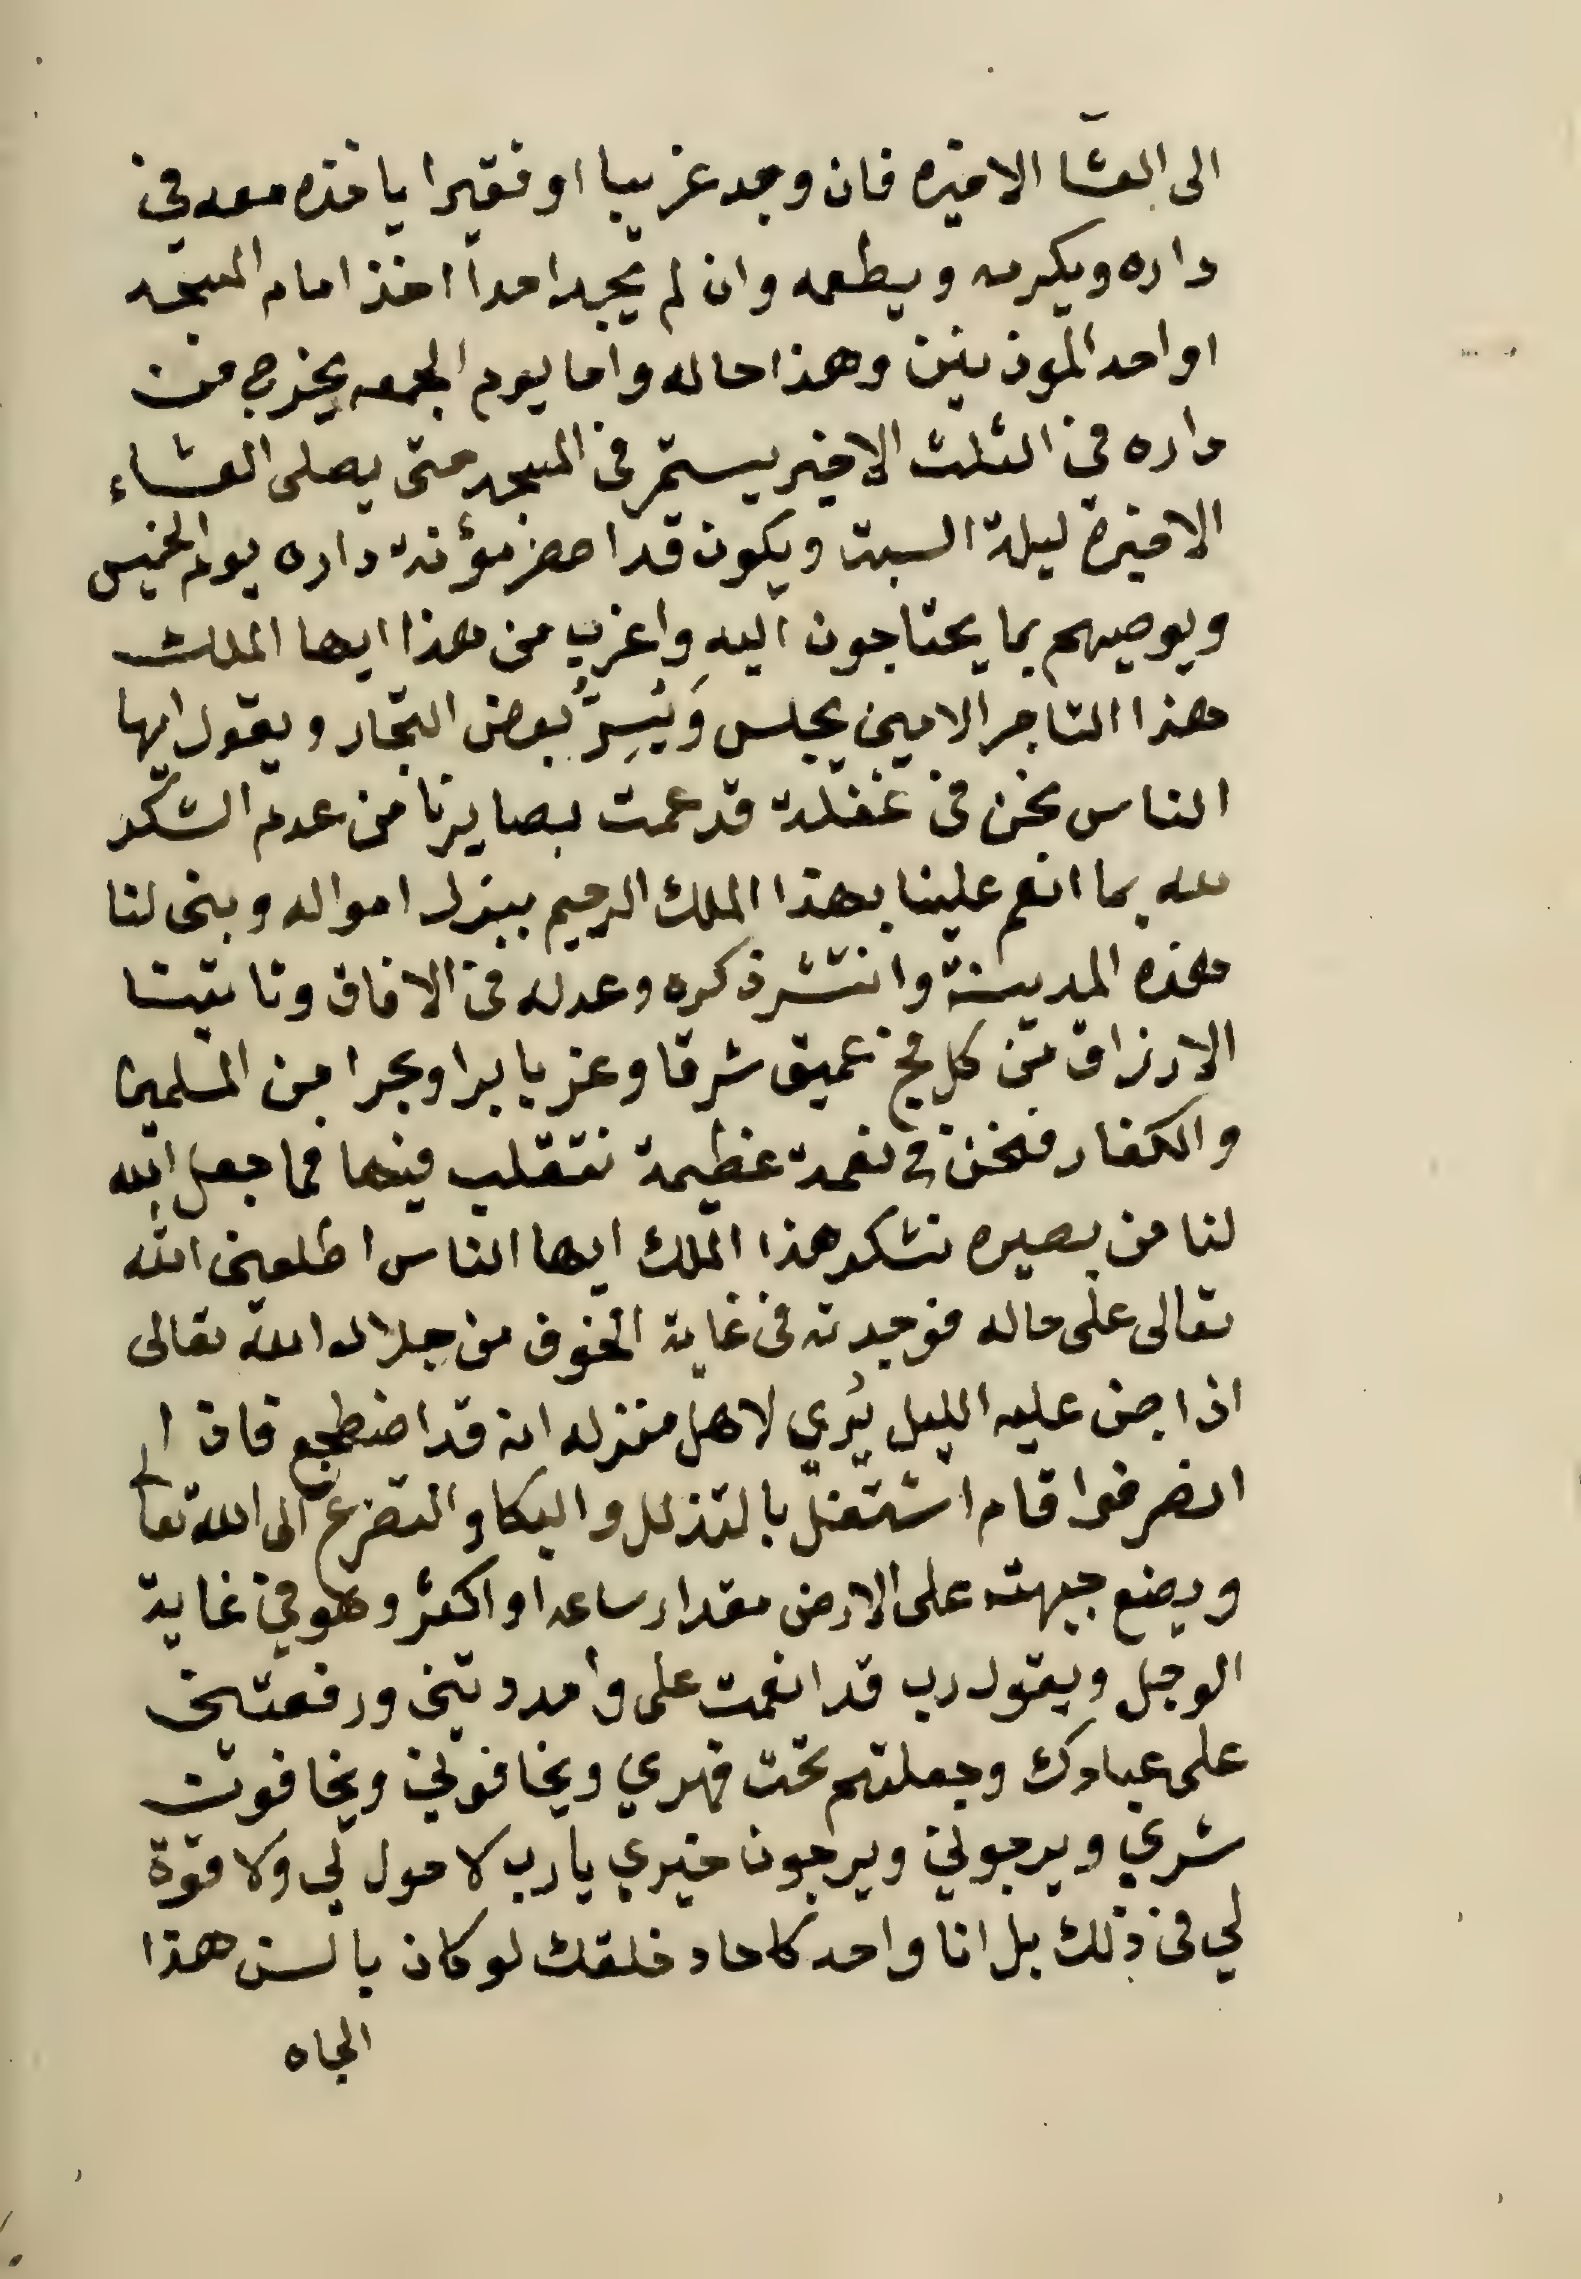 الى العشا الاخيره فان وجد غريبا او فقيرا ياخذه معه في
داره ويكرمه ويطعمه وان لم يجد احدا اخذ امام المسجد
او احد الموذنين وهذا حاله واما يوم الجمعه يخرج من
داره في الثلث الاخير يستمر في المسجد حتى يصلى العشاء
الاخيرة ليلة السبت ويكون قد احضر مؤنة داره يوم الخميس
ويوصيهم بما يحتاجون اليه واغرب من هذا ايها الملك
هذا التاجر الامين يجلس ويسر بعض التجار ويقول ايها
الناس نحن في غفلة قد عمت بصايرنا من عدم الشكر
لله بما انعم علينا بهذا الملك الرحيم ببذل امواله وبنى لنا
هذه المدينة وانتشر ذكره وعدله في الافاق وتاتينا
الارزاق من كل فج عميق شرقا وغربا برا وبحرا من المسلمين
والكفار فنحن في نعمة عظيمة نتقلب فيها فما جعل الله
لنا من بصيره نشكر هذا الملك ايها الناس اطلعني الله
تعالى على حاله فوجدته في غاية الخوف من جلاله الله تعالى
اذا جن عليه الليل يُري لاهل منزله انه قد اضطجع فاذا
انصرفوا قام اشتغل بالتذلل والبكا والتضرع الى الله تعالى
ويضع جبهته على الارض مقدار ساعه او اكثر وهو في غاية
الوجل ويقول رب قد انعمت على وامددتني ورفعتني
على عبادك وجعلتهم تحت قهري ويخافوني ويخافون
شري ويرجوني ويرجون خيري يا رب لا حول لي ولا قوة
لي في ذلك بل انا واحد كاحاد خلقك لو كان بالسن هذا
الجاه